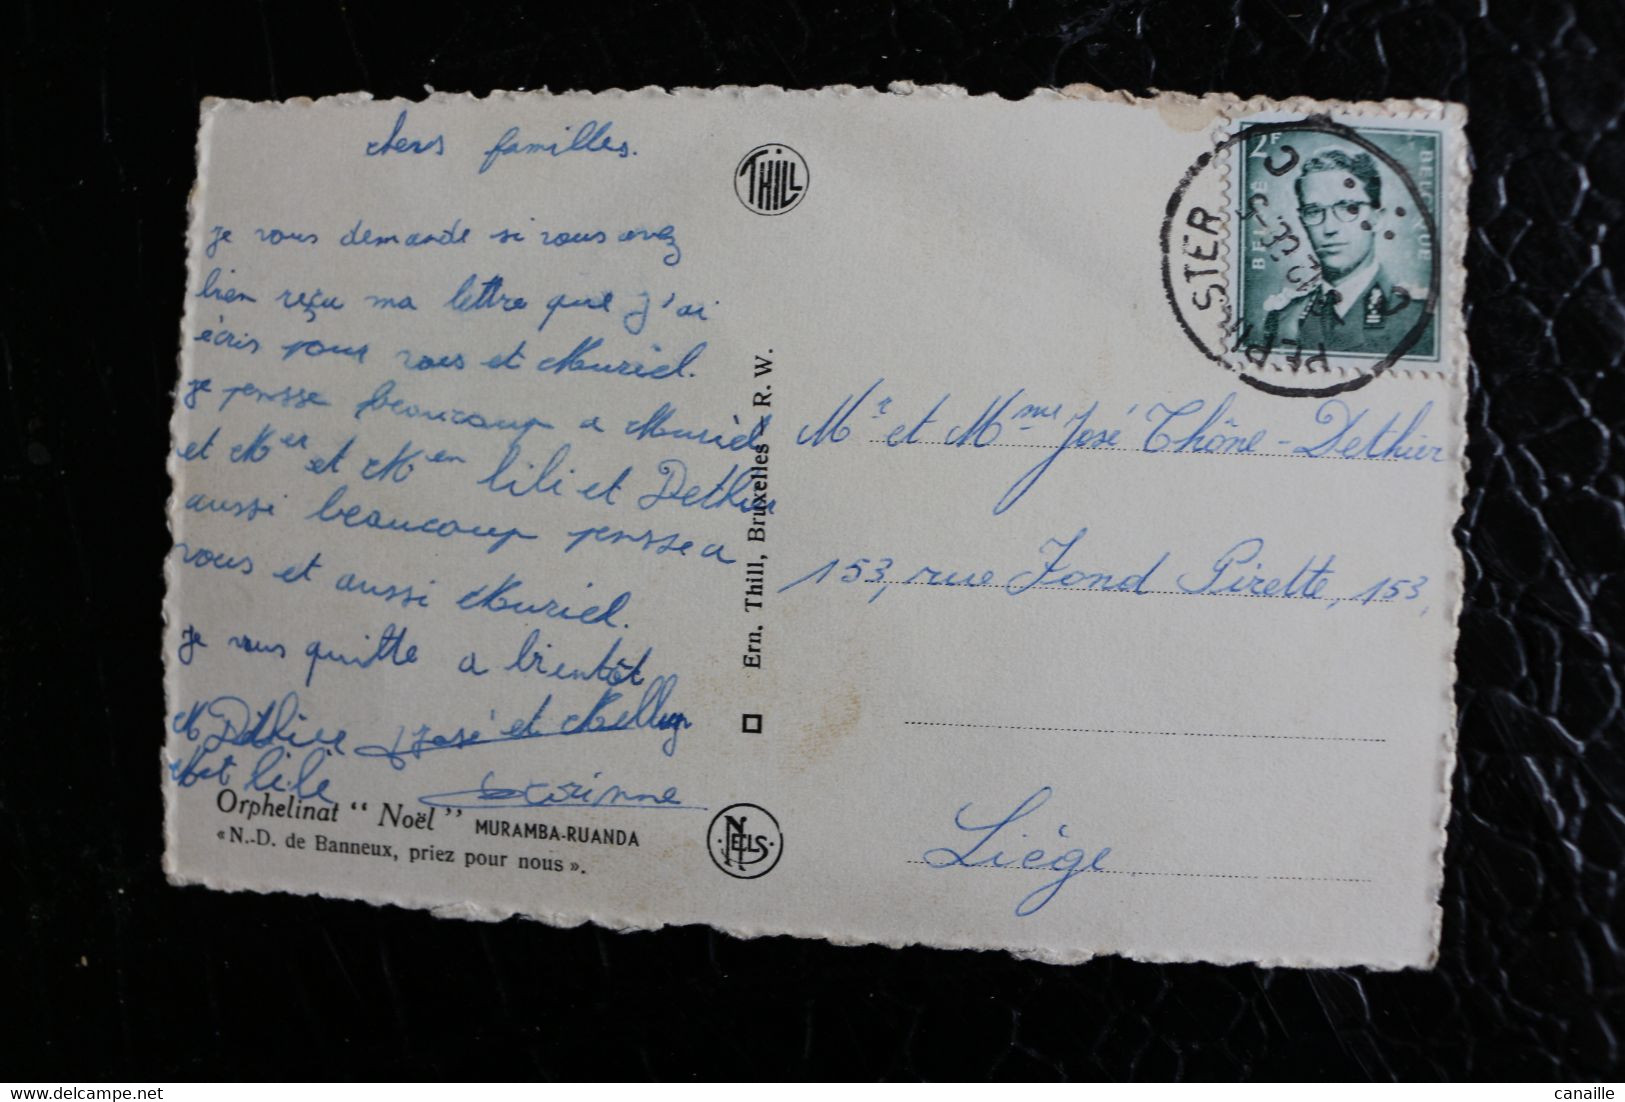 chers familles.
je vous demande si vous avez
bien reçu ma lettre que j'ai
écris pour vous et Muriel.
je pensse beaucoup a Muriel
et Mer et Men lili et Dethier
aussi beaucoup pensse a
vous et aussi Muriel.
je vous quitte a bientôt
M Dethier José et
et lili Corinne
Orphelinat “ Noël ” MURAMBA-RUANDA
« N.-D. de Banneux, priez pour nous ».
THILL
Ern. Thill, Bruxelles — R. W.
NELS
2F
BELGIE
BELGIQUE
PEPINSTER
Mr et Mme José Thône-Dethier
153, rue Fond Pirette, 153,
Liége
canaille